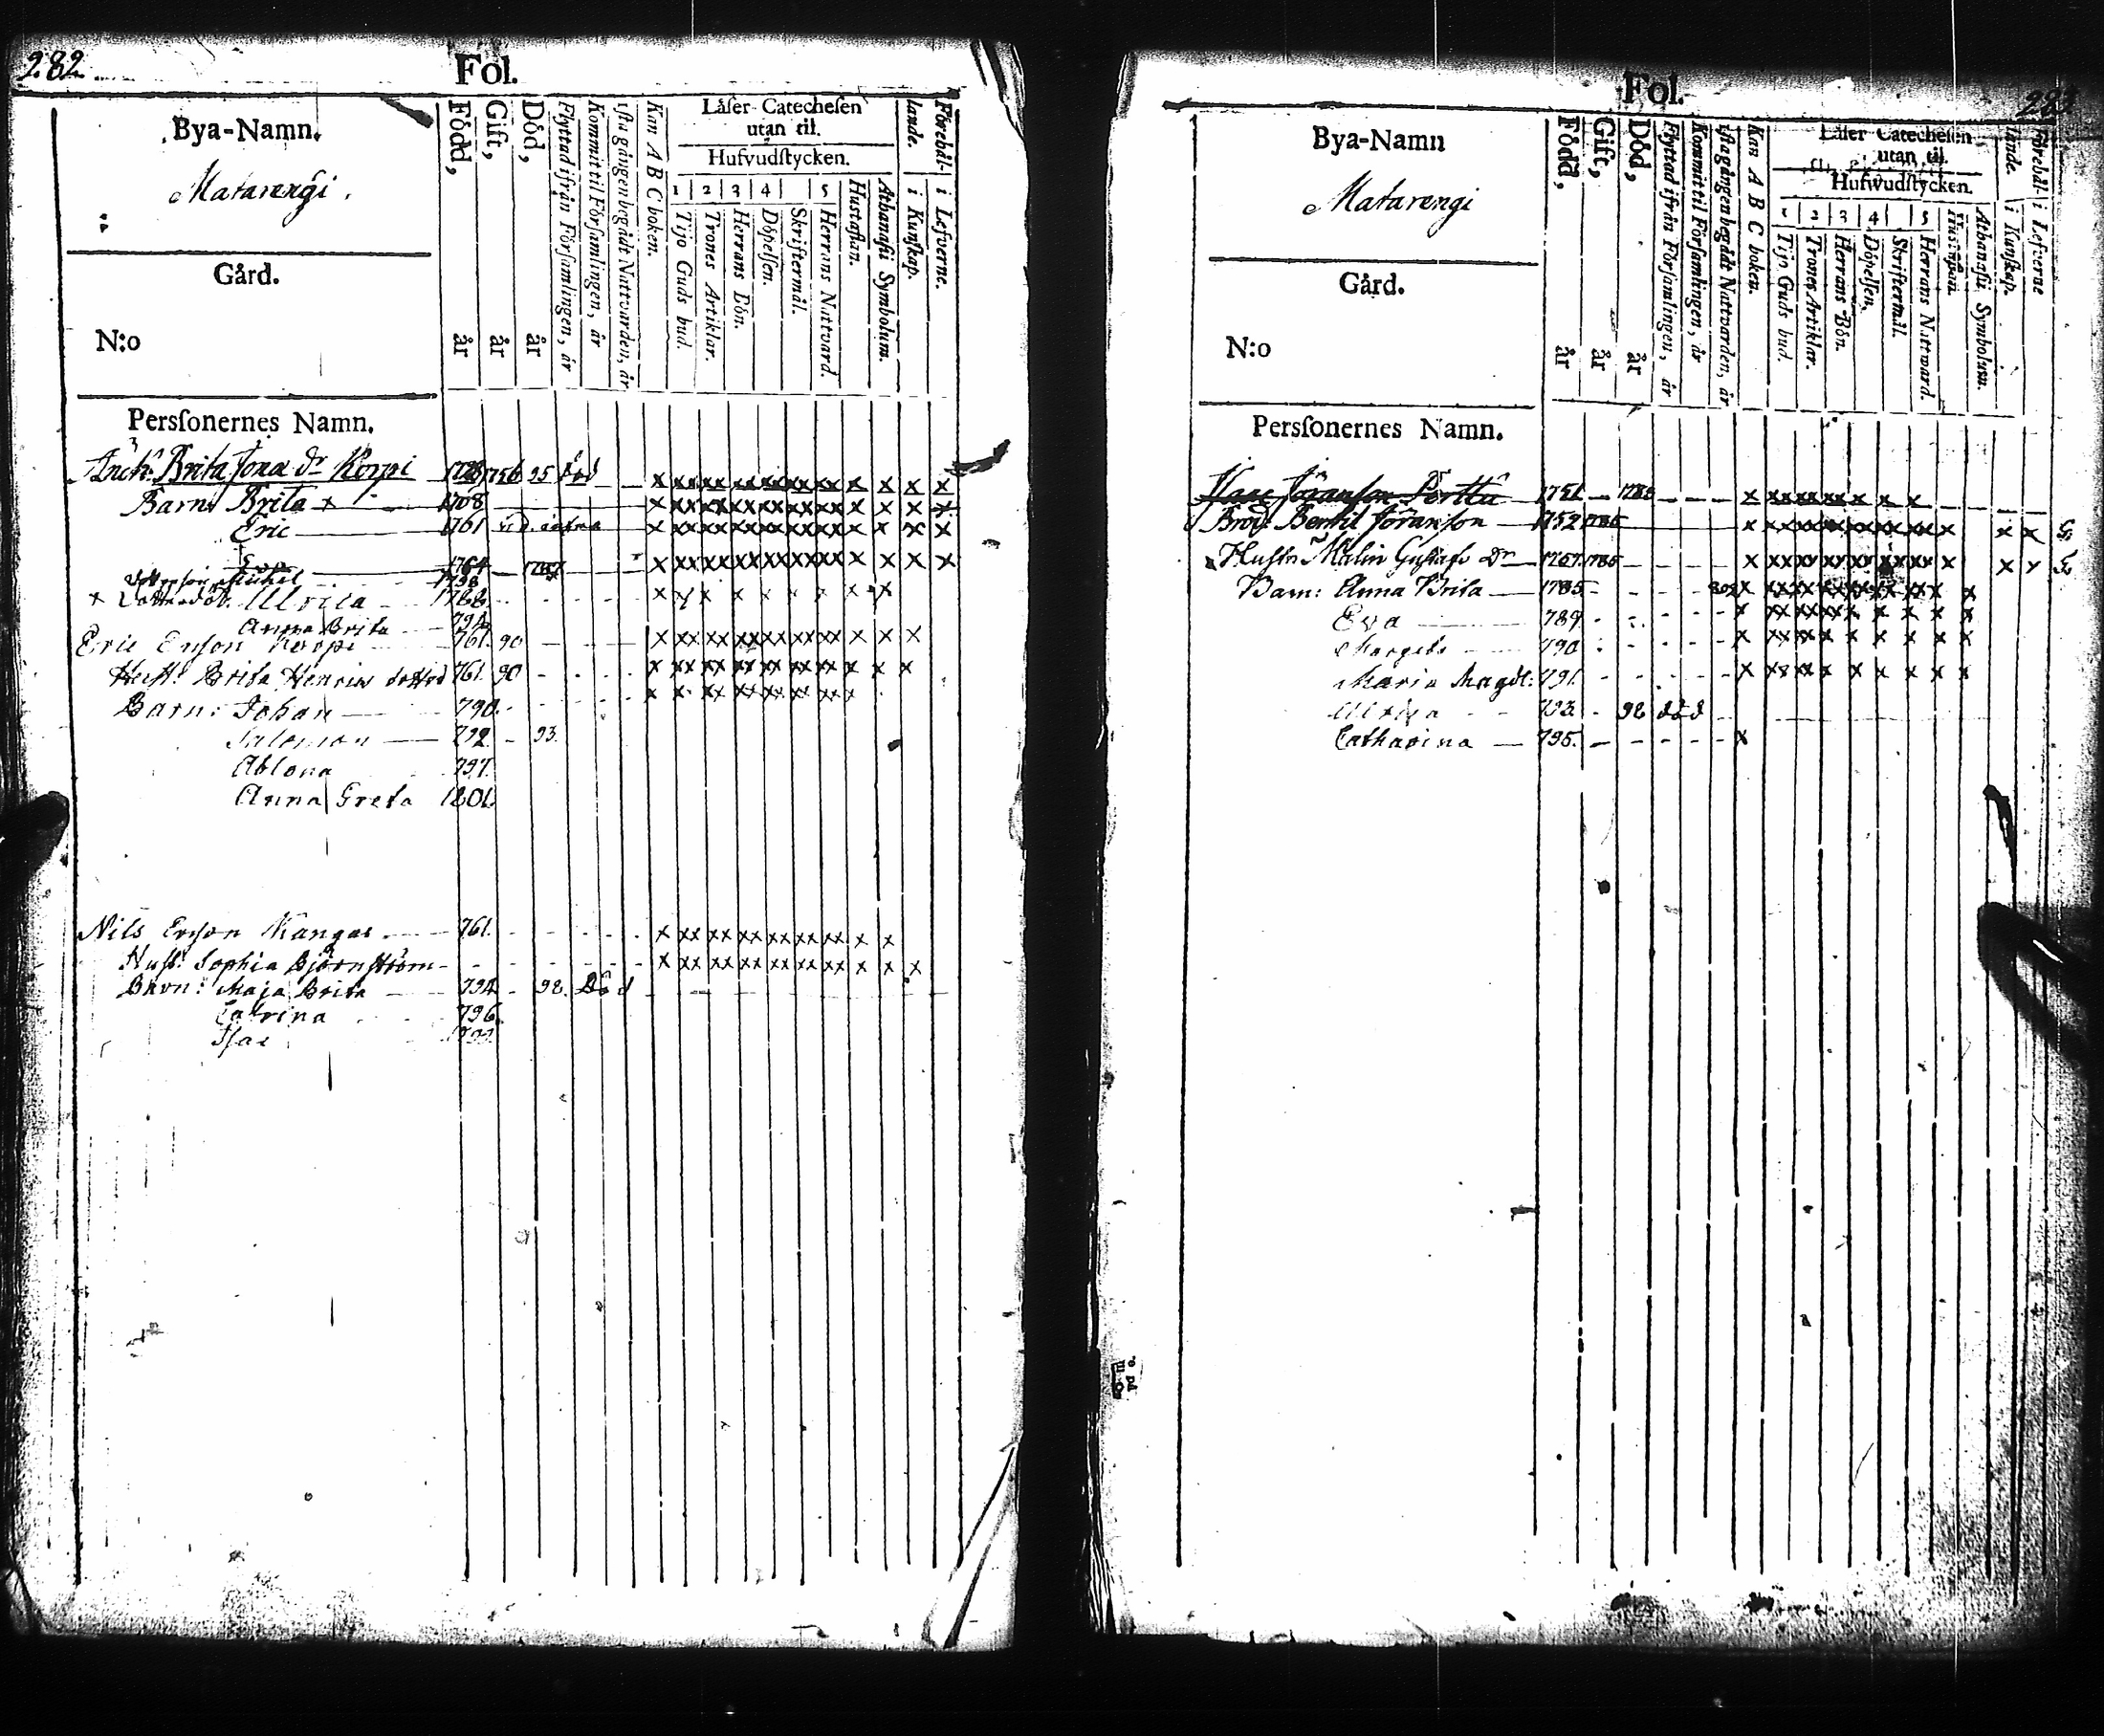 282
Fol.
Bya-Namn.
Matarengi.
Gård.
N:o
Född, år
Gift, år
Död, år
Flyttad ifrån Församlingen, år
Kommit til Församlingen, år
1sta gången begådt Nattvarden, år
Kan A B C boken.
Läser Catechesen
utan til.
Hufvudstycken.
1 2 3 4 5
Tijo Guds bud.
Trones Artiklar.
Herrans Bön.
Döpelsen.
Skriftermål.
Herrans Nattvard.
Hustaflan.
Athanasii Symbolum.
Förehål-
lande.
i Kunskap.
i Lefverne.
Personernes Namn.
Brita Jonæ Dr Korpi 1756 95 död
Barn: Brita x
Eric 1761
Eva 1764
Michel
Ulrica 1788
Anna Brita
Eric Erson Korpi 761. 90
Hust: Brita Henrics dotter 761. 90
Barn: Johan 790.
Salomon 792. 93.
Ablona 797.
Anna Greta 1801.
Nils Erson Kangas 761.
Hust: Sophia Björnström
Barn: Maja Brita 794 98. Död
Catrina 796.
Isac
Fol.
Bya-Namn
Matarengi
Gård.
N:o
Född, år
Gift, år
Död, år
Flyttad ifrån Församlingen, år
Kommit til Församlingen, år
1sta gången begådt Nattvarden, år
Kan A B C boken.
Läser Catechesen
utan til.
Hufwudstycken.
1 2 3 4 5
Tijo Guds bud.
Trones Artiklar.
Herrans Bön.
Döpelsen.
Skriftermål.
Herrans Nattward.
Hustaflan.
Athanasii Symbolum.
Förehål-
lande.
i Kunskap.
i Lefverne
Personernes Namn.
Isac Jöranson Perttu 1751
Brod: Bertil Jöranson 1752
Hustr: Malin Gustafs Dr 1757. 1785
Barn: Anna Brita 1785
Eva 789
Margeta 790
Maria Magdl: 791.
Ulrica 793. 98 död
Catharina 795.